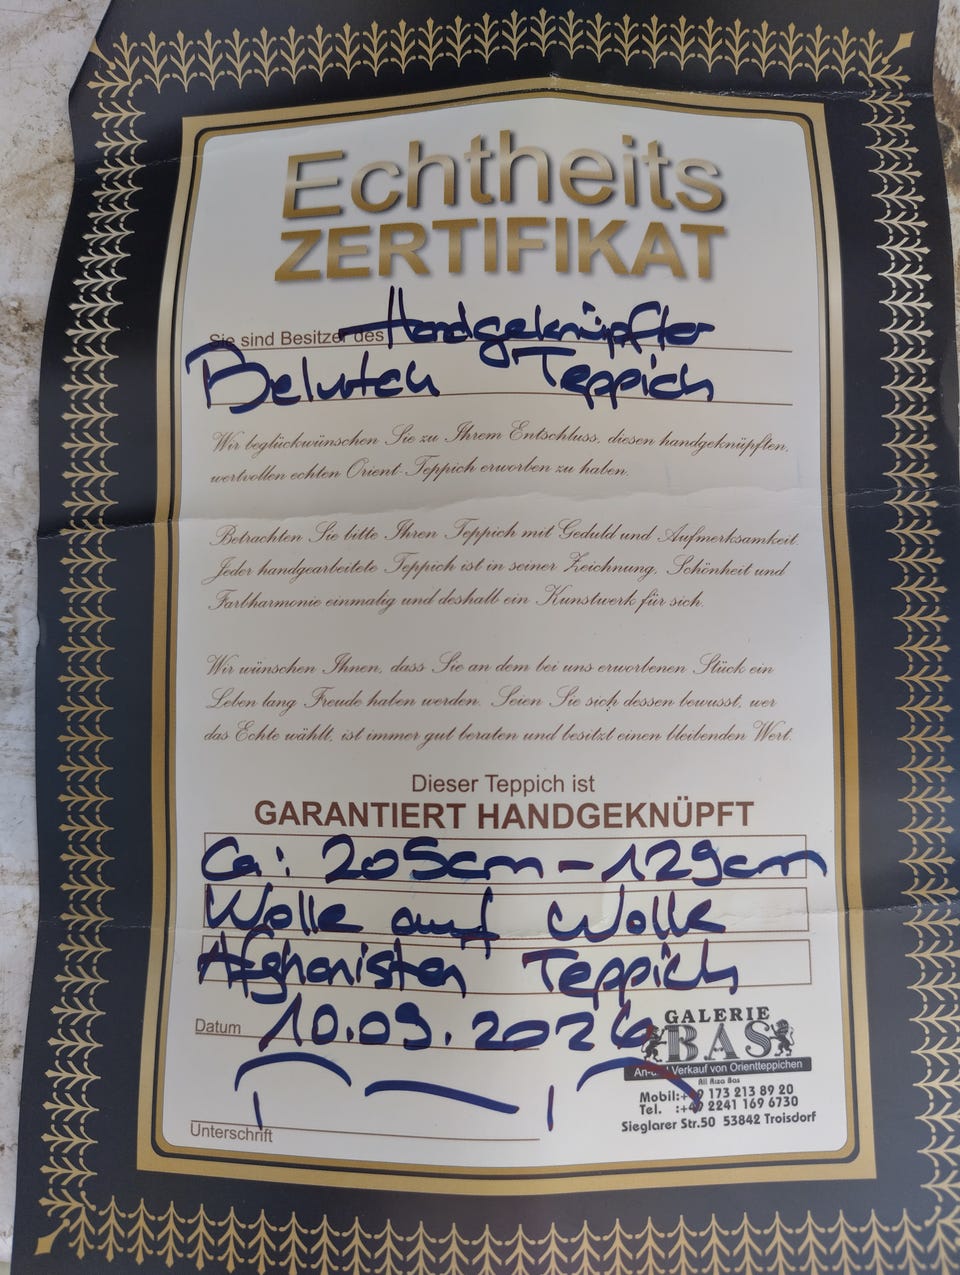 Echtheits
ZERTIFIKAT
Sie sind Besitzer des Handgeknüpfter
Belutch Teppich
Wir beglückwünschen Sie zu Ihrem Entschluss, diesen handgeknüpften,
wertvollen echten Orient-Teppich erworben zu haben.
Betrachten Sie bitte Ihren Teppich mit Geduld und Aufmerksamkeit
Jeder handgearbeitete Teppich ist in seiner Zeichnung, Schönheit und
Farbharmonie einmalig und deshalb ein Kunstwerk für sich.
Wir wünschen Ihnen, dass Sie an dem bei uns erworbenen Stück ein
Leben lang Freude haben werden. Seien Sie sich dessen bewusst, wer
das Echte wählt, ist immer gut beraten und besitzt einen bleibenden Wert.
Dieser Teppich ist
GARANTIERT HANDGEKNÜPFT
Ca: 205cm - 129cm
Wolle auf Wolle
Afghanistan Teppich
Datum 10.09.2026
GALERIE
BAS
An- und Verkauf von Orientteppichen
Ali Riza Bas
Mobil:+49 173 213 89 20
Tel. :+49 2241 169 6730
Sieglarer Str.50 53842 Troisdorf
Unterschrift